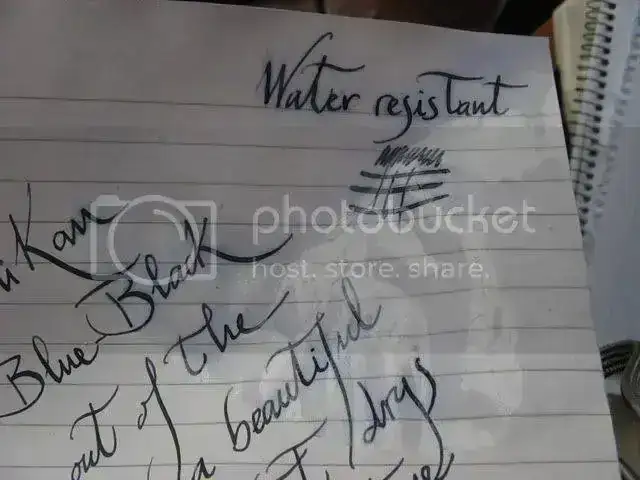 Water resistant
Blue-Black
out of the
a beautiful
photobucket
host. store. share.